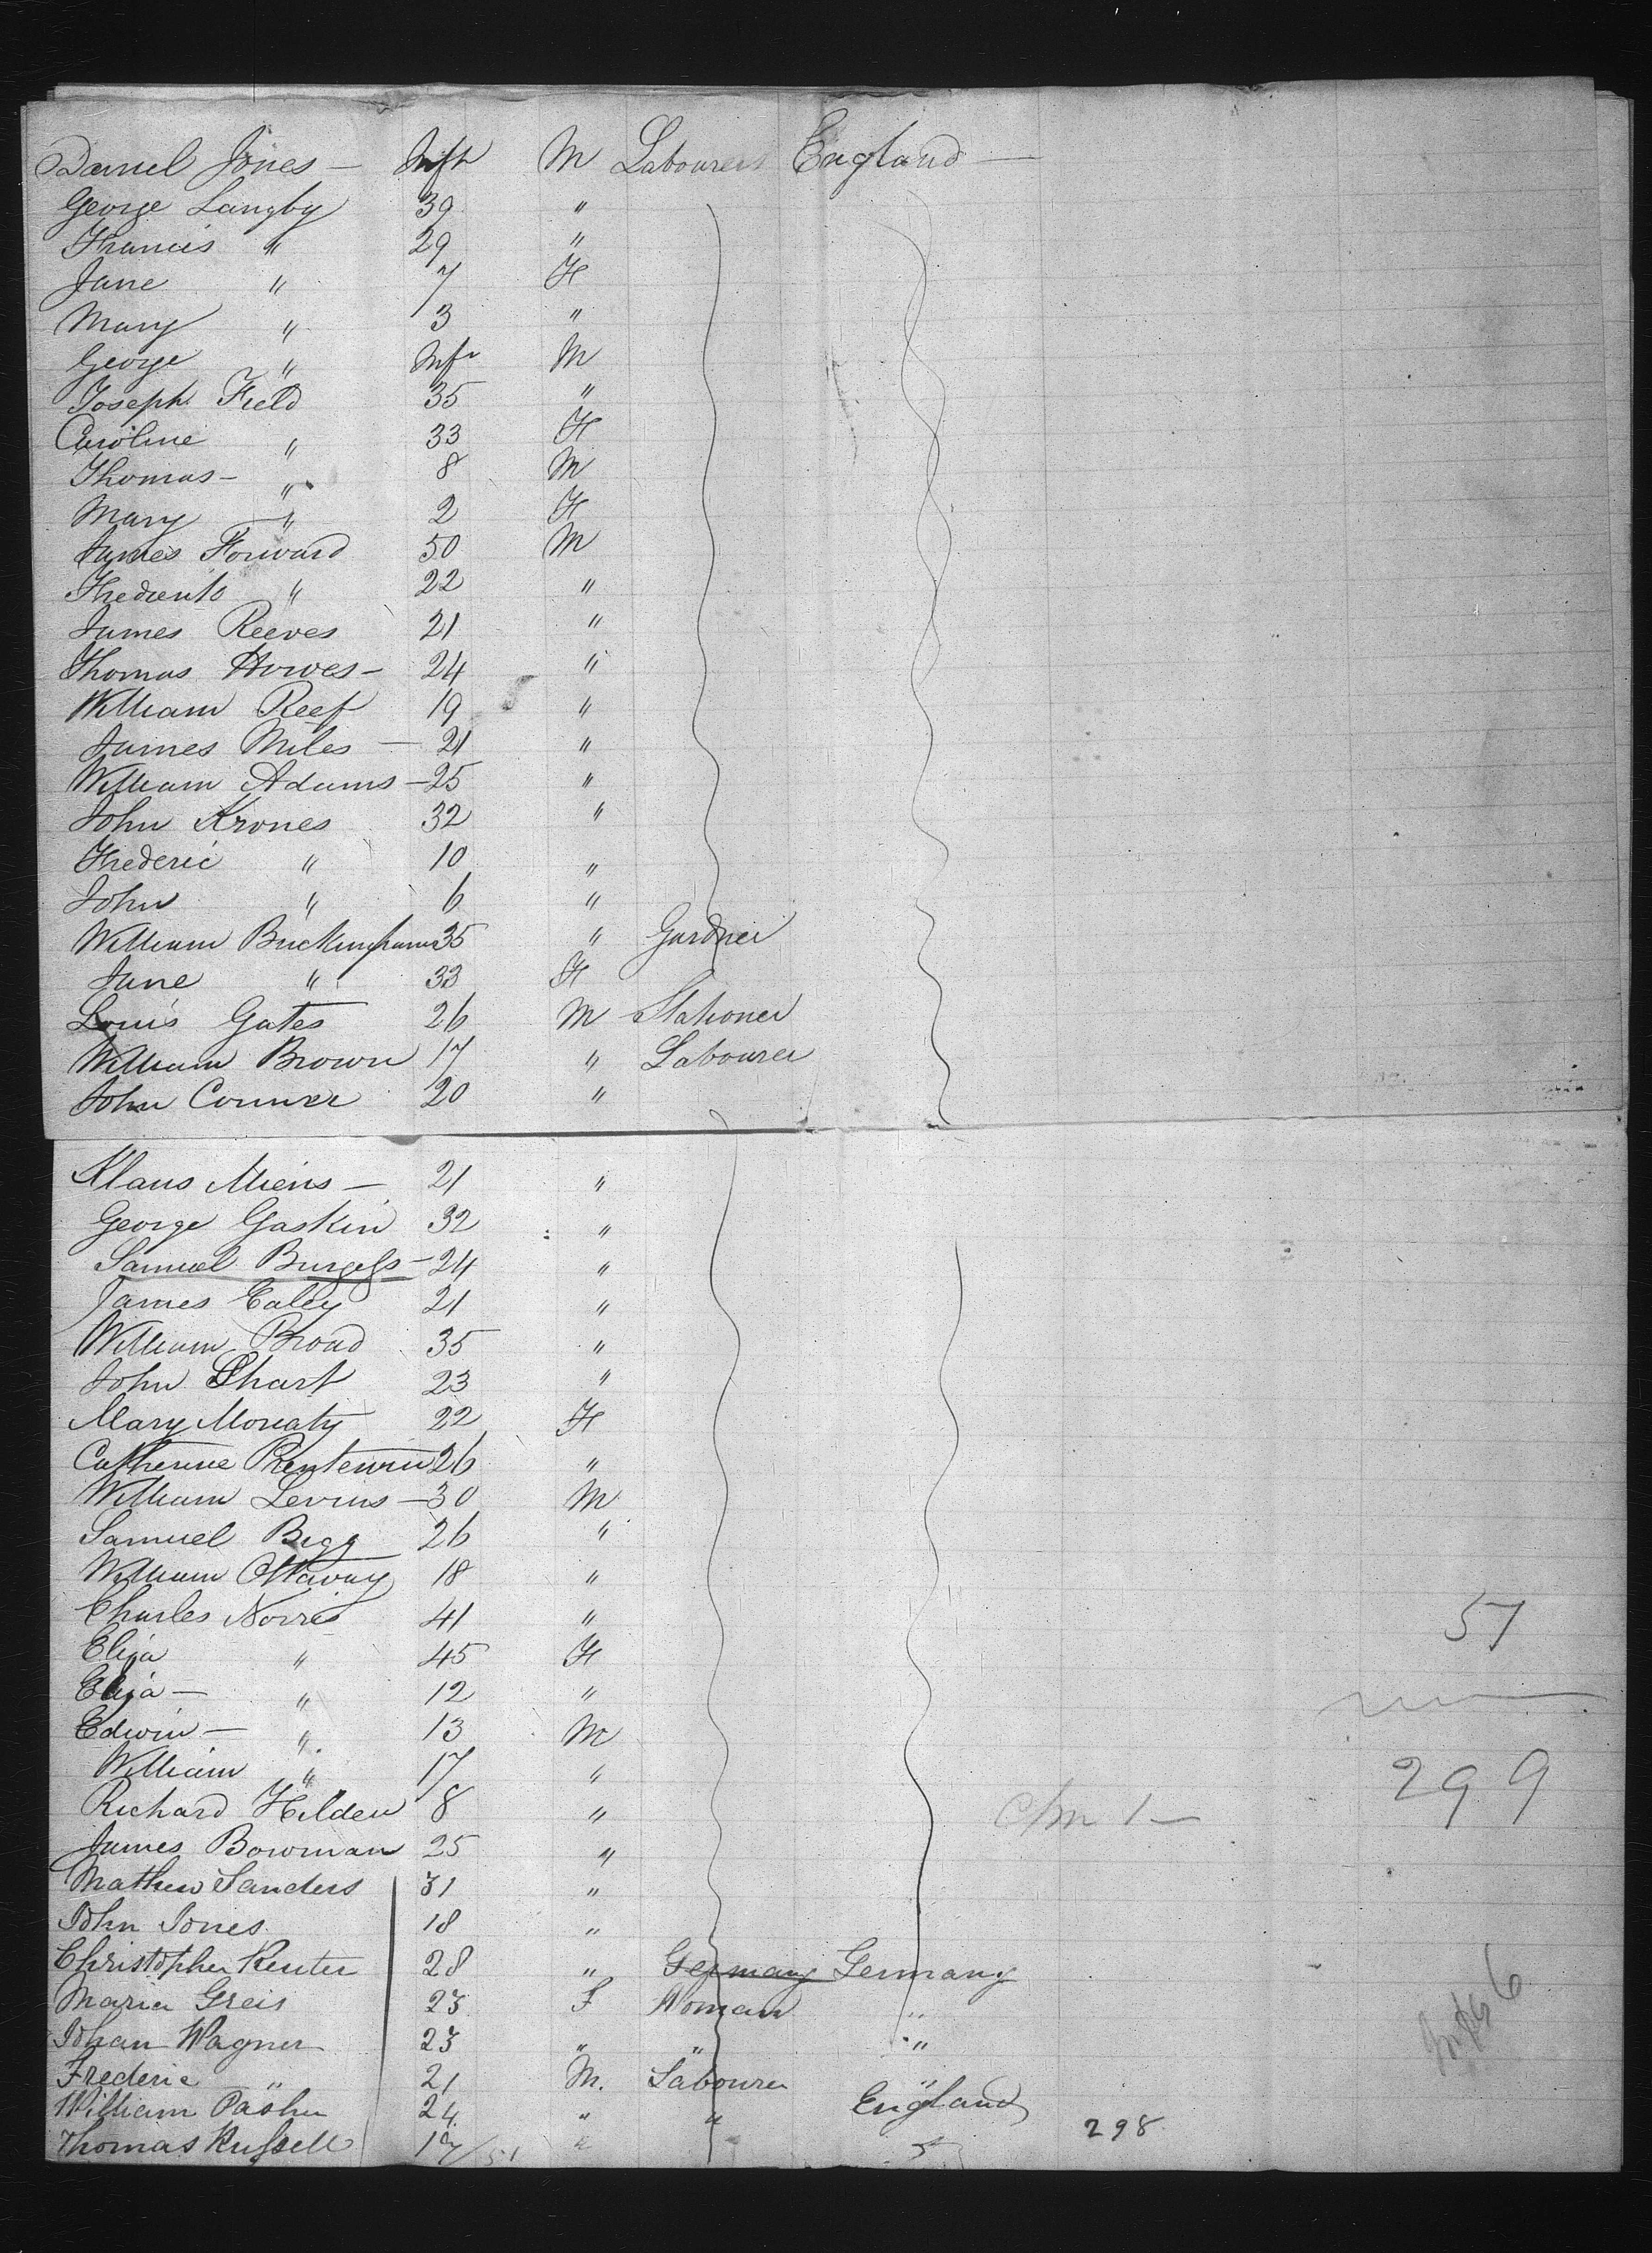 Daniel Jones — Inft M Labourer England —
George Langby 39 "
Francis " 29 "
Jane " 7 F
Mary " 3 "
George " Inft M
Joseph Field 35 "
Caroline " 33 F
Thomas — " 8 M
Mary " 2 F
James Forward 50 M
" 22 "
James Reeves 21 "
Thomas Howes — 24 "
William Reef 19 "
James Miles — 21 "
William Adams — 25 "
John Krones 32 "
Frederic " 10 "
John " 6 "
William Buckingham 35 " Gardner
Jane " 33 F
Louis Gates 26 M Stationer
William Brown 17 " Labourer
John Conner 20 "
Klaus Miens — 21 "
George Gaskin 32 "
Samuel Burgess — 24 "
James Ealey 21 "
William Broad 35 "
John Shart 23 "
Mary Moriaty 22 F
Catherine 26 "
William Levins — 30 M
Samuel Bigg 26 "
William Ottaway 18 "
Charles Norris 41 "
51
Eliza " 45 F
Eliza — " 12 "
Edwin — " 13 M
William " 17 "
299
Richard Hilden 8 "
1 —
James Bowman 25 "
Mathew Sanders 31 "
John Jones 18 "
Christopher Reuter 28 " Germany Germany
Maria Greis 23 F Woman "
Johan Wagner 23 " " "
Frederic " 21 M. Labourer "
William Pasher 24 " " England
298
Thomas Russell 17/51 "